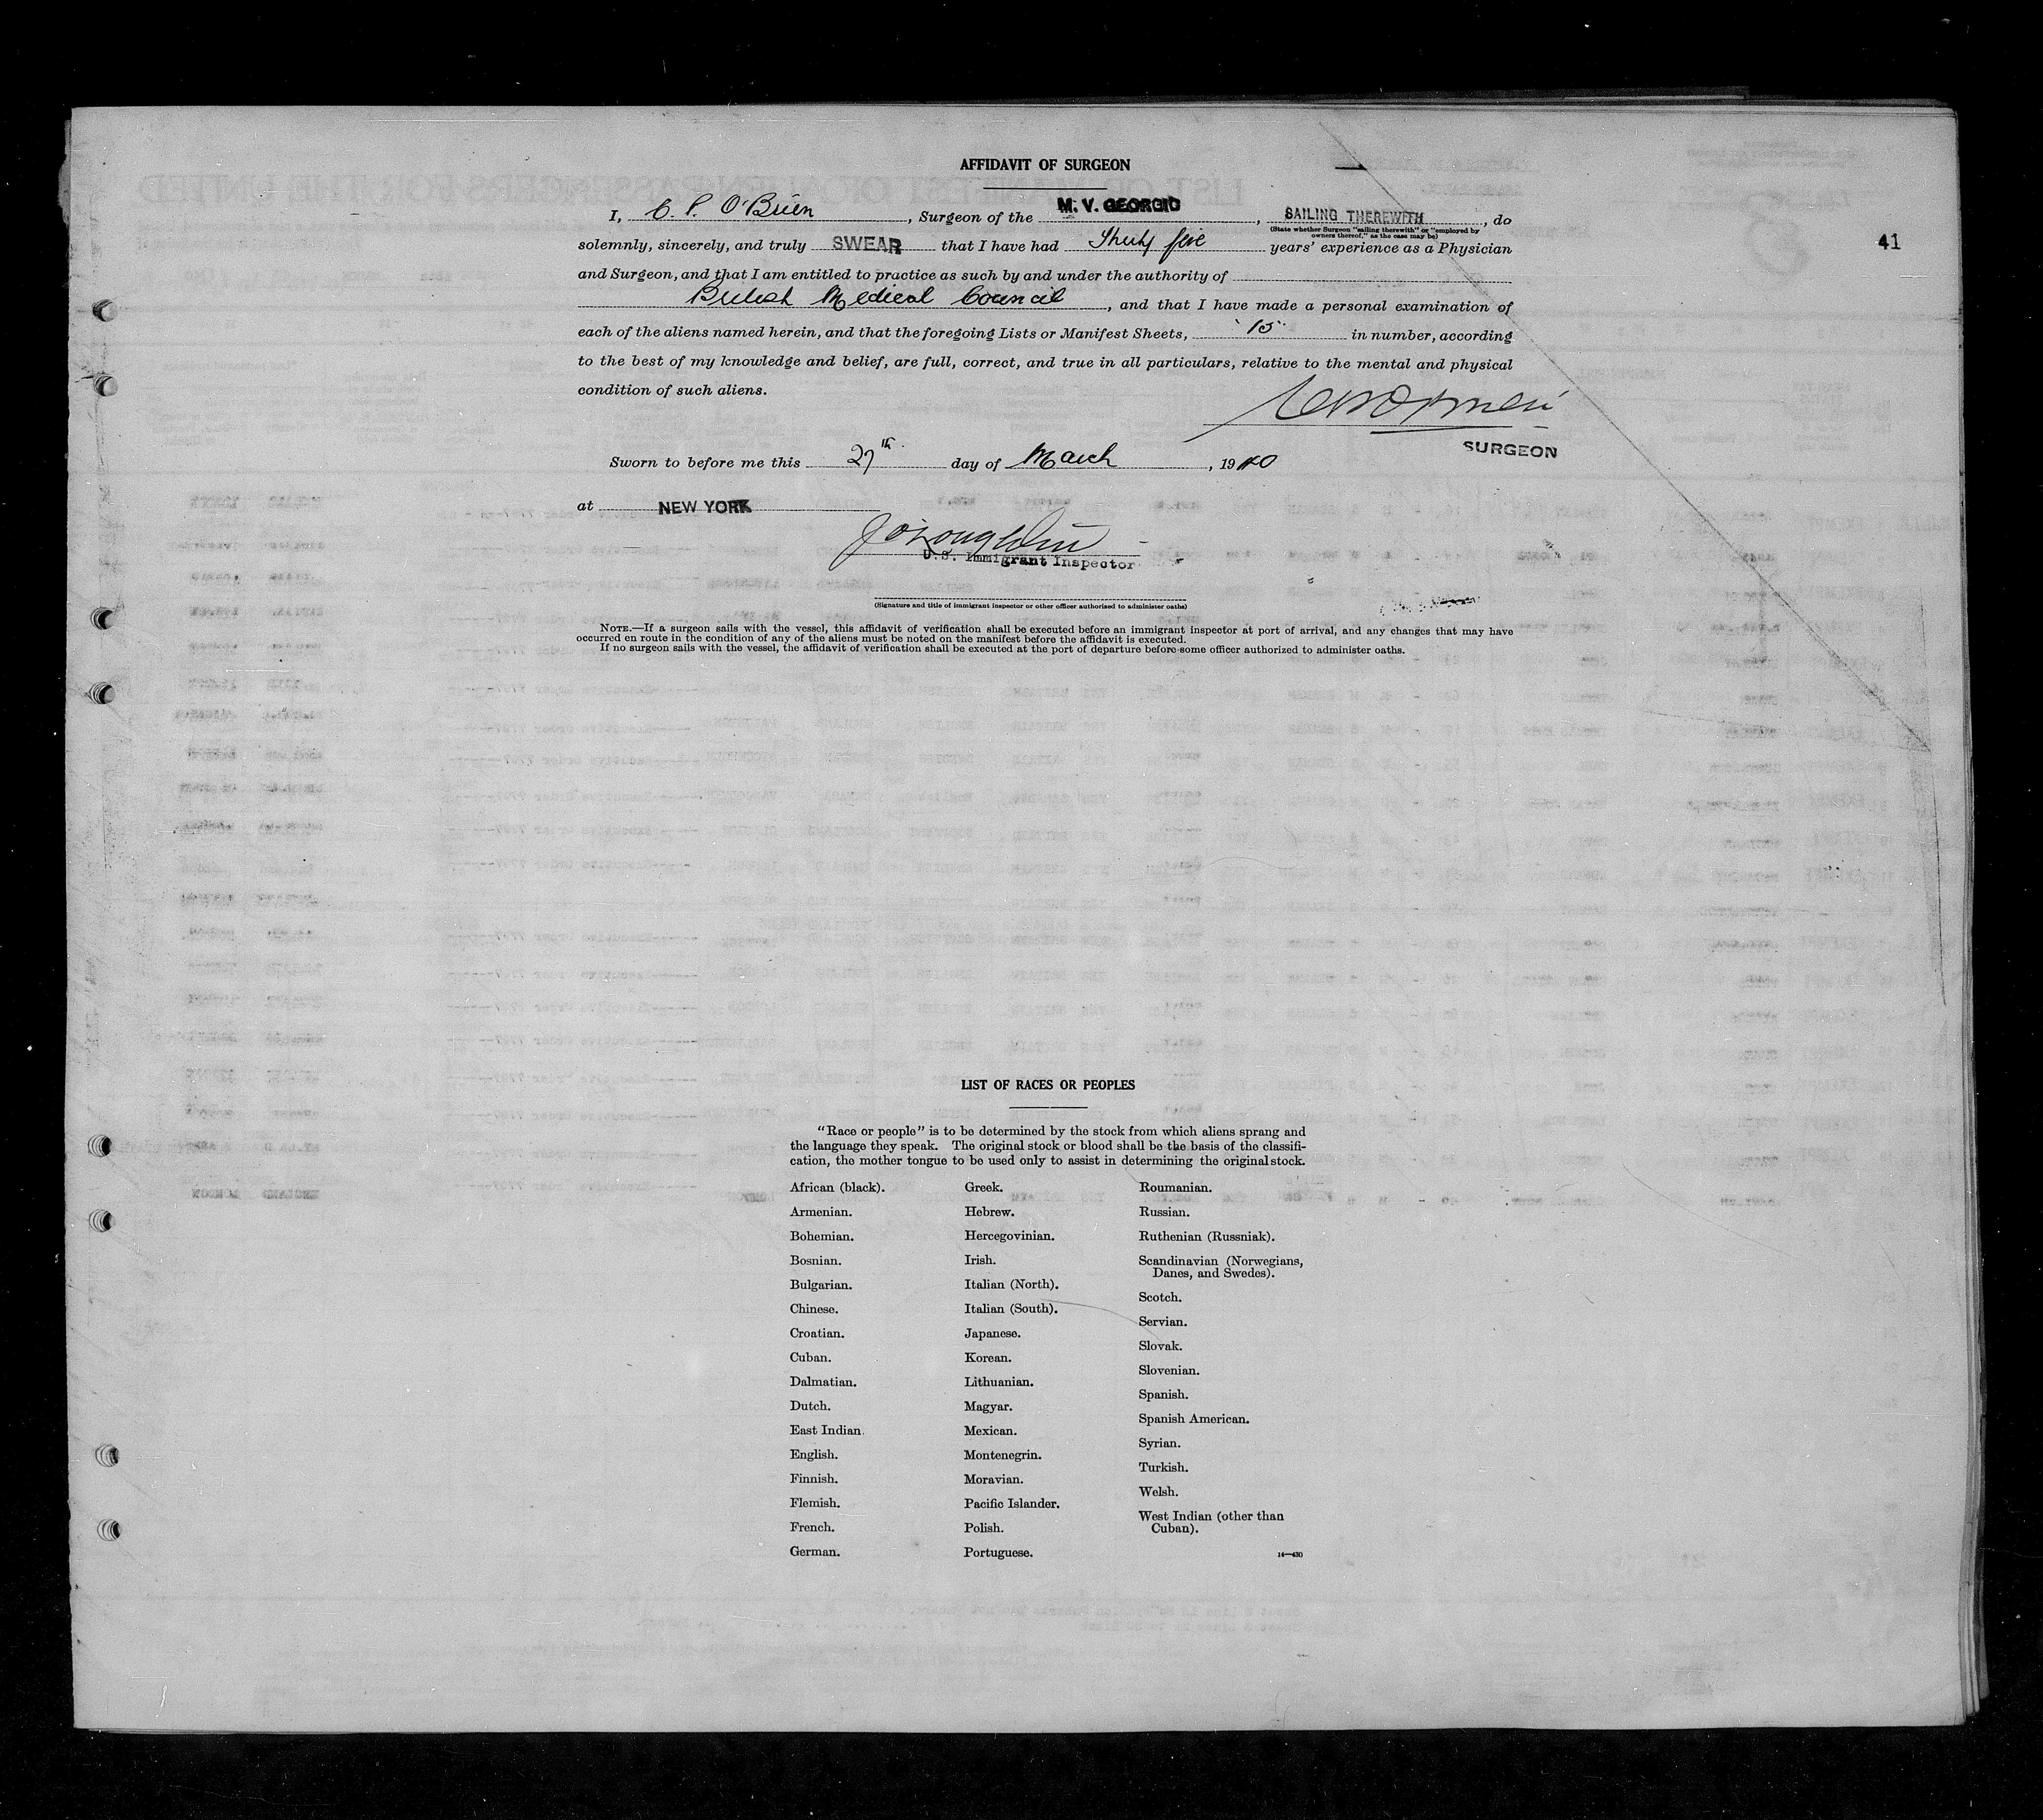 AFFIDAVIT OF SURGEON
I, C. P. O'Brien, Surgeon of the M. V. GEORGIC, SAILING THEREWITH, do
(State whether Surgeon "sailing therewith" or "employed by
owners thereof," as the case may be)
41
solemnly, sincerely, and truly SWEAR that I have had Thirty five years' experience as a Physician
and Surgeon, and that I am entitled to practice as such by and under the authority of
British Medical Council, and that I have made a personal examination of
each of the aliens named herein, and that the foregoing Lists or Manifest Sheets, 15 in number, according
to the best of my knowledge and belief, are full, correct, and true in all particulars, relative to the mental and physical
condition of such aliens.
SURGEON
Sworn to before me this 27th day of March, 1940
at NEW YORK
J O'Loughlin
U.S. Immigrant Inspector
(Signature and title of immigrant inspector or other officer authorized to administer oaths)
NOTE.—If a surgeon sails with the vessel, this affidavit of verification shall be executed before an immigrant inspector at port of arrival, and any changes that may have
occurred en route in the condition of any of the aliens must be noted on the manifest before the affidavit is executed.
If no surgeon sails with the vessel, the affidavit of verification shall be executed at the port of departure before some officer authorized to administer oaths.
LIST OF RACES OR PEOPLES
"Race or people" is to be determined by the stock from which aliens sprang and
the language they speak. The original stock or blood shall be the basis of the classifi-
cation, the mother tongue to be used only to assist in determining the original stock.
African (black).
Armenian.
Bohemian.
Bosnian.
Bulgarian.
Chinese.
Croatian.
Cuban.
Dalmatian.
Dutch.
East Indian.
English.
Finnish.
Flemish.
French.
German.
Greek.
Hebrew.
Hercegovinian.
Irish.
Italian (North).
Italian (South).
Japanese.
Korean.
Lithuanian.
Magyar.
Mexican.
Montenegrin.
Moravian.
Pacific Islander.
Polish.
Portuguese.
Roumanian.
Russian.
Ruthenian (Russniak).
Scandinavian (Norwegians,
Danes, and Swedes).
Scotch.
Servian.
Slovak.
Slovenian.
Spanish.
Spanish American.
Syrian.
Turkish.
Welsh.
West Indian (other than
Cuban).
14—430